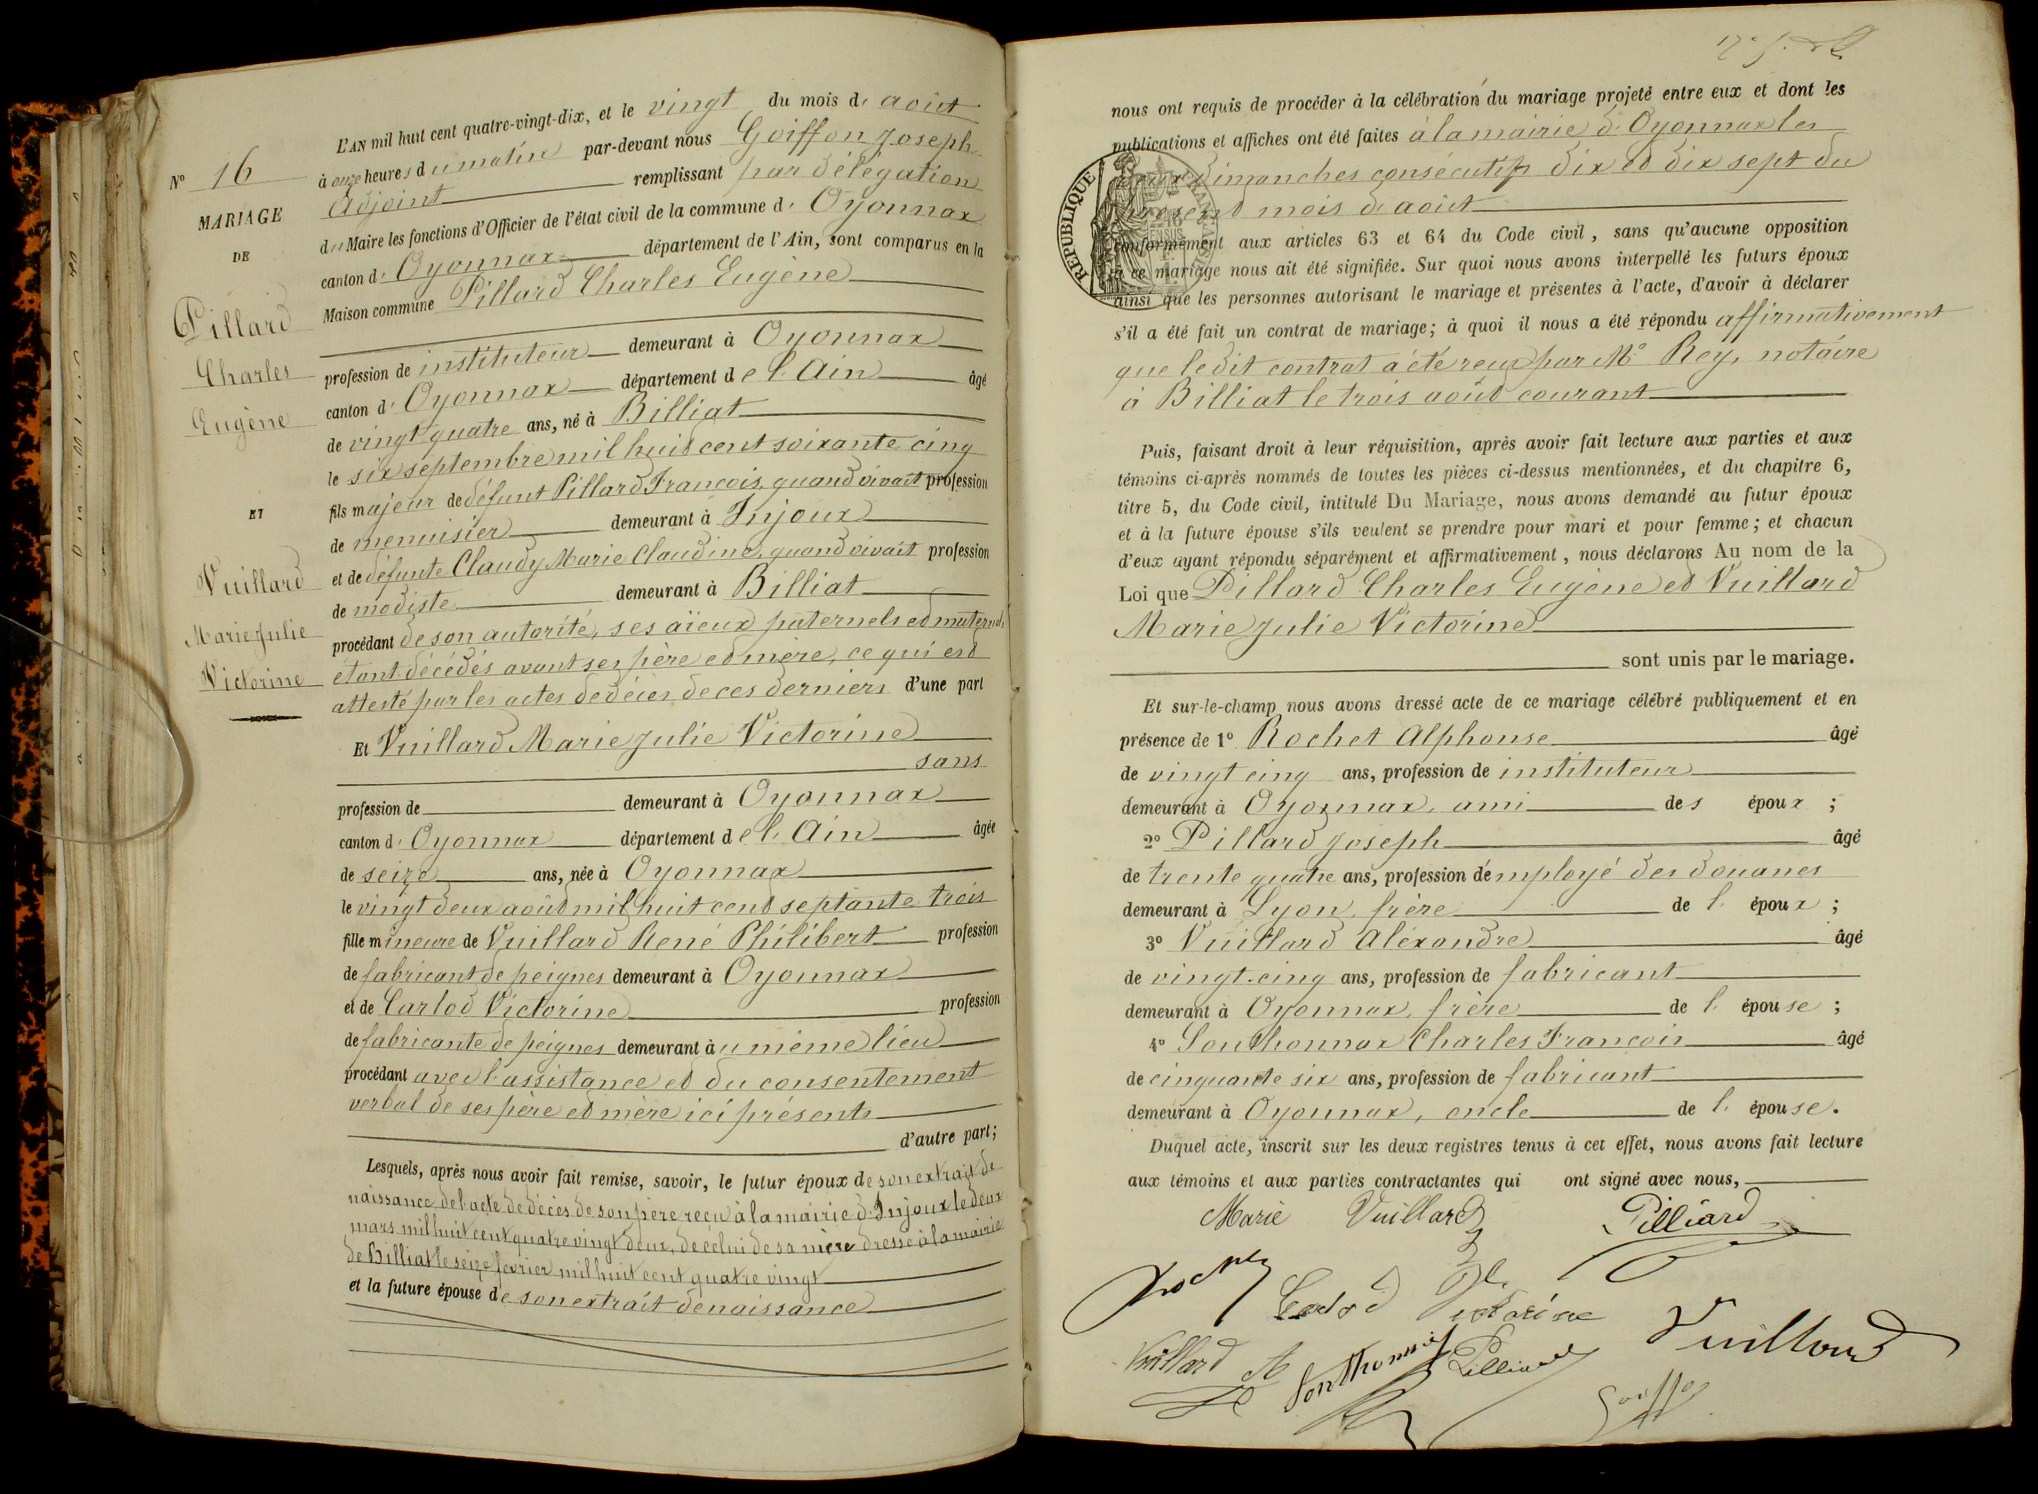 N° 16
MARIAGE
DE
Pillard
Charles
Eugène
ET
Vuillard
Marie Julie
Victorine
L'AN mil huit cent quatre-vingt-dix, et le vingt du mois d'août
à onze heures du matin par-devant nous Goiffon Joseph
Adjoint remplissant par délégation
du Maire les fonctions d'Officier de l'état civil de la commune d'Oyonnax
canton d'Oyonnax département de l'Ain, sont comparus en la
Maison commune Pillard Charles Eugène
profession de instituteur demeurant à Oyonnax
canton d'Oyonnax département de l'Ain âgé
de vingt quatre ans, né à Billiat
le six septembre mil huit cent soixante cinq
fils majeur de défunt Pillard François, quand vivait profession
de menuisier demeurant à Injoux
et de défunte Claudy Marie Claudine, quand vivait profession
de modiste demeurant à Billiat
procédant de son autorité, ses aïeux paternels et maternels
étant décédés avant ses père et mère, ce qui est
attesté par les actes de décès de ces derniers d'une part
Et Vuillard Marie Julie Victorine
sans
profession de demeurant à Oyonnax
canton d'Oyonnax département de l'Ain âgée
de seize ans, née à Oyonnax
le vingt deux août mil huit cent septante trois
fille mineure de Vuillard René Philibert profession
de fabricant de peignes demeurant à Oyonnax
et de Carlod Victorine profession
de fabricante de peignes demeurant au même lieu
procédant avec l'assistance et du consentement
verbal de ses père et mère ici présents
d'autre part;
Lesquels, après nous avoir fait remise, savoir, le futur époux de son extrait de
naissance, de l'acte de décès de son père reçu à la mairie d'Injoux le deux
mars mil huit cent quatre vingt deux, de celui de sa mère dressé à la mairie
de Billiat le seize février mil huit cent quatre vingt
et la future épouse de son extrait de naissance
nous ont requis de procéder à la célébration du mariage projeté entre eux et dont les
publications et affiches ont été faites à la mairie d'Oyonnax les
deux dimanches consécutifs dix et dix sept du
présent mois d'août
conformément aux articles 63 et 64 du Code civil, sans qu'aucune opposition
à ce mariage nous ait été signifiée. Sur quoi nous avons interpellé les futurs époux
ainsi que les personnes autorisant le mariage et présentes à l'acte, d'avoir à déclarer
s'il a été fait un contrat de mariage; à quoi il nous a été répondu affirmativement
que ledit contrat a été reçu par Me Rey, notaire
à Billiat le trois août courant
RÉPUBLIQUE FRANÇAISE
Puis, faisant droit à leur réquisition, après avoir fait lecture aux parties et aux
témoins ci-après nommés de toutes les pièces ci-dessus mentionnées, et du chapitre 6,
titre 5, du Code civil, intitulé Du Mariage, nous avons demandé au futur époux
et à la future épouse s'ils veulent se prendre pour mari et pour femme; et chacun
d'eux ayant répondu séparément et affirmativement, nous déclarons Au nom de la
Loi que Pillard Charles Eugène et Vuillard
Marie Julie Victorine
sont unis par le mariage.
Et sur-le-champ nous avons dressé acte de ce mariage célébré publiquement et en
présence de 1° Rochet Alphonse âgé
de vingt cinq ans, profession de instituteur
demeurant à Oyonnax, ami des époux ;
2° Pillard Joseph âgé
de trente quatre ans, profession d'employé des douanes
demeurant à Lyon, frère de l'époux ;
3° Vuillard Alexandre âgé
de vingt-cinq ans, profession de fabricant
demeurant à Oyonnax, frère de l'épouse ;
4° Sonthonnax Charles François âgé
de cinquante six ans, profession de fabricant
demeurant à Oyonnax, oncle de l'épouse.
Duquel acte, inscrit sur les deux registres tenus à cet effet, nous avons fait lecture
aux témoins et aux parties contractantes qui ont signé avec nous,
Marie Vuillard Pilliard
Rochet Carlod Victorine
Vuillard Al Sonthonnax Pilliard Vuillard
Goiffon